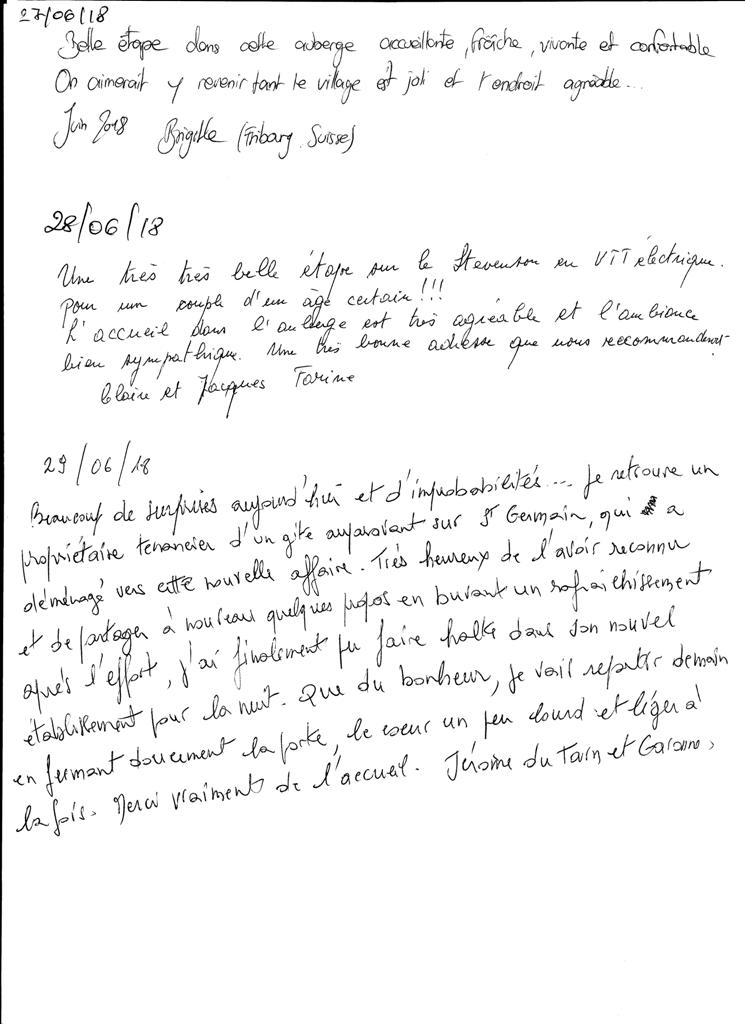 27/06/18
Belle étape dans cette auberge accueillante, fraîche, vivante et confortable
On aimerait y revenir tant le village est joli et l'endroit agréable...
Juin 2018 Brigitte (Fribourg Suisse)
28/06/18
Une très très belle étape sur le Stevenson en VTT électrique.
Pour un couple d'un âge certain!!!
L'accueil dans l'auberge est très agréable et l'ambiance
bien sympathique. Une très bonne adresse que nous recommanderons
Claire et Jacques Farine
29/06/18
Beaucoup de surprises aujourd'hui et d'improbabilités... Je retrouve un
propriétaire tenancier d'un gîte auparavant sur St Germain, qui a
déménagé vers cette nouvelle affaire. Très heureux de l'avoir reconnu
et de partager à nouveau quelques propos en buvant un rafraichissement
après l'effort, j'ai finalement pu faire halte dans son nouvel
établissement pour la nuit. Que du bonheur, je vais repartir demain
en fermant doucement la porte, le coeur un peu lourd et léger à
la fois. Merci vraiment de l'accueil. Jérôme du Tarn et Garonne,